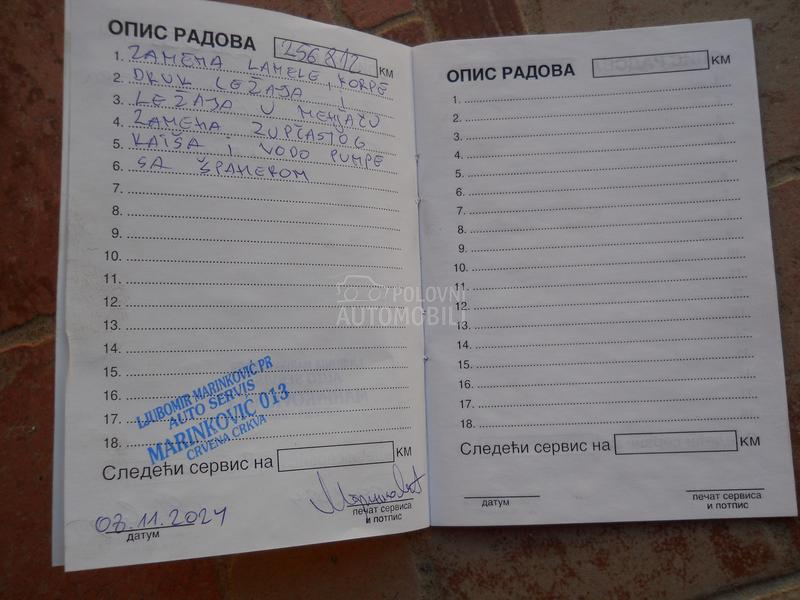 ОПИС РАДОВА 256 812 КМ
1. ZAMENA LAMELE, KORPE
2. DRUK LEŽAJA I
3. LEŽAJA U MENJAČU
4. ZAMENA ZUPČASTOG
5. KAIŠA I VODO PUMPE
6. SA ŠPANEROM
7.
8.
9.
10.
11.
12.
13.
14.
15.
16.
17.
18.
LJUBOMIR MARINKOVIĆ PR
AUTO SERVIS
MARINKOVIĆ 013
CRVENA CRKVA
Следећи сервис на КМ
03.11.2024
датум
печат сервиса
и потпис
POLOVNI
AUTOMOBILI
ОПИС РАДОВА КМ
1.
2.
3.
4.
5.
6.
7.
8.
9.
10.
11.
12.
13.
14.
15.
16.
17.
18.
Следећи сервис на КМ
датум
печат сервиса
и потпис